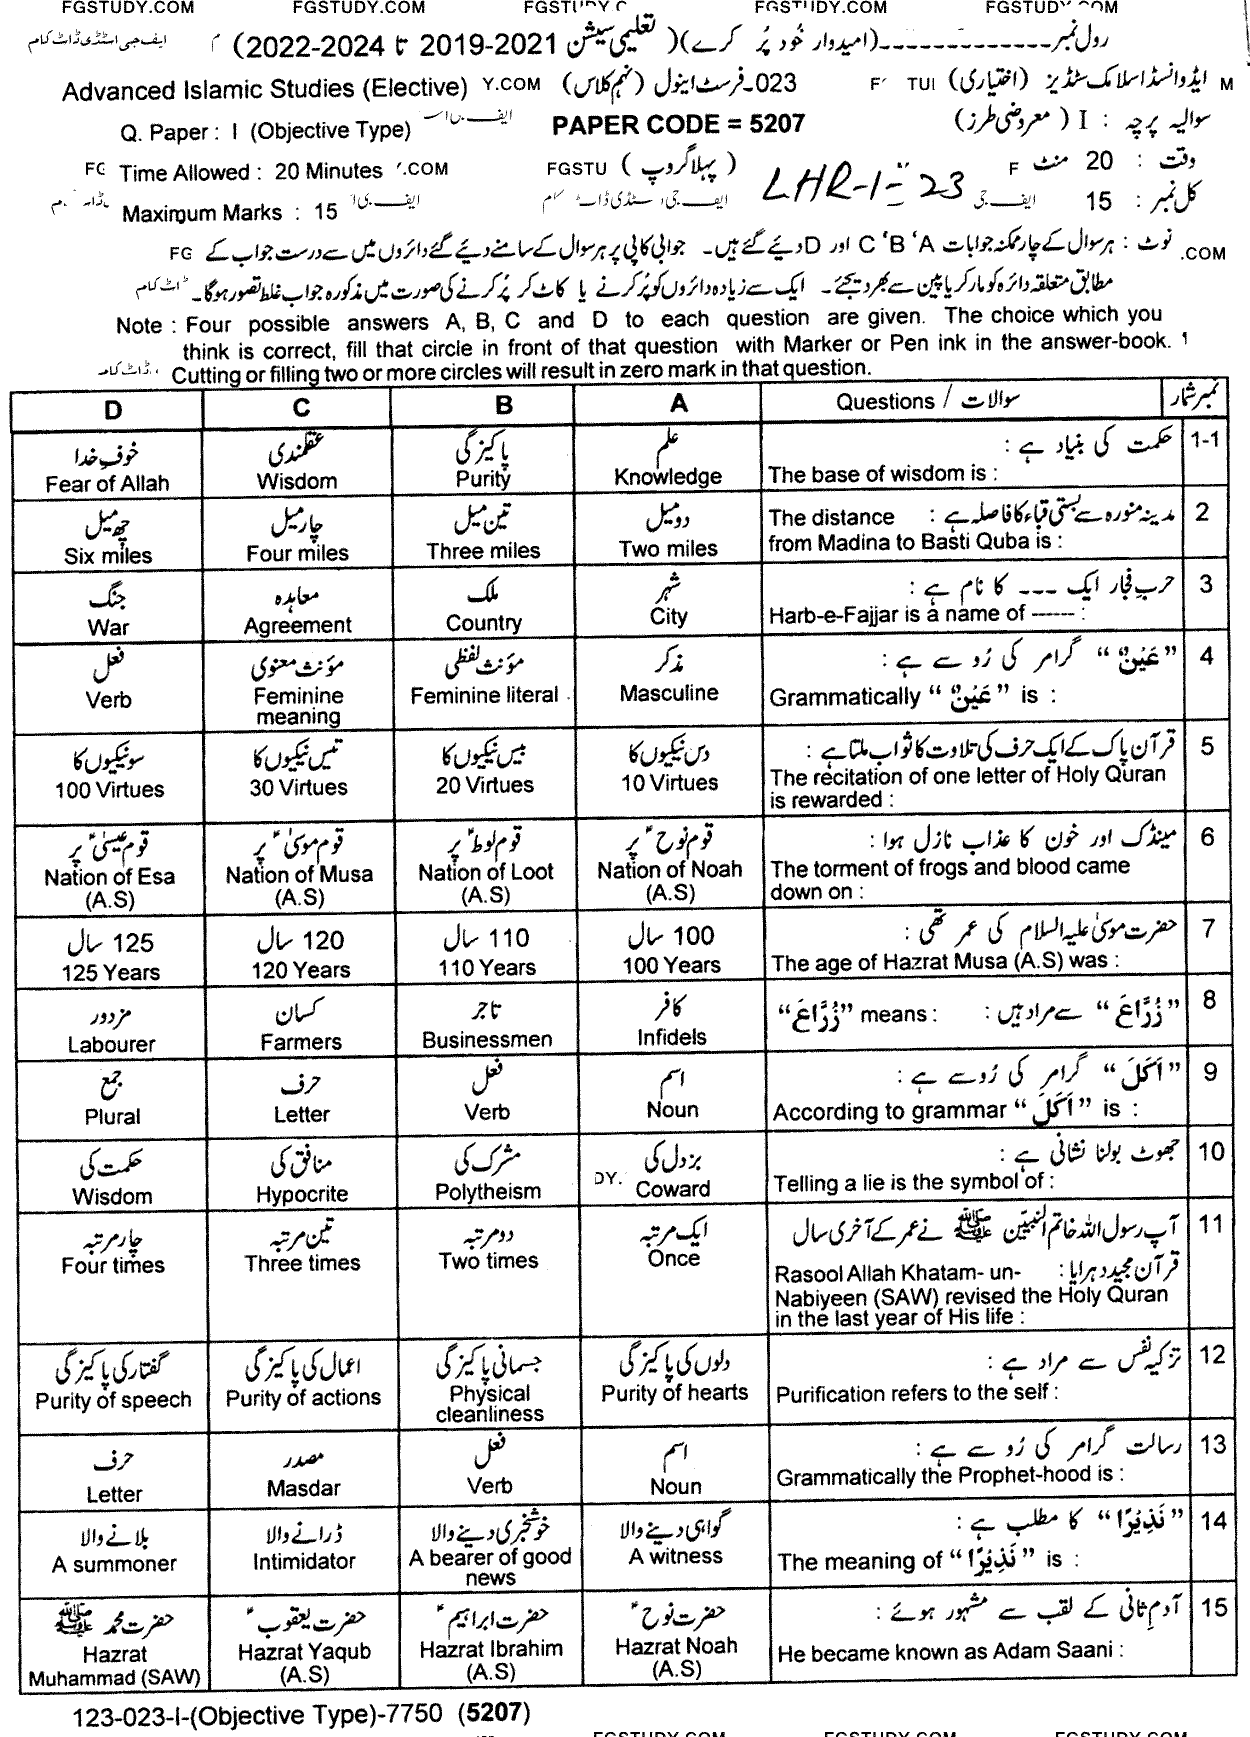 FGSTUDY.COM FGSTUDY.COM FGSTUDY.COM FGSTUDY.COM
رول نمبر ـ ـ ـ ـ ـ ـ ـ ـ ـ ـ ـ ـ (امیدوار خود پُر کرے) (تعلیمی سیشن 2021-2019 تا 2024-2022) ایف جی اسٹڈی ڈاٹ کام
ایڈوانسڈ اسلامک سٹڈیز (اختیاری) 023۔فرسٹ اینول (نہم کلاس) Y.COM Advanced Islamic Studies (Elective)
سوالیہ پرچہ : I (معروضی طرز) PAPER CODE = 5207 Q. Paper : I (Objective Type)
وقت : 20 منٹ (پہلا گروپ) FGSTU LHR-1-23 .COM Time Allowed : 20 Minutes
کل نمبر : 15 Maximum Marks : 15
نوٹ : ہر سوال کے چار ممکنہ جوابات A ' B ' C اور D دیئے گئے ہیں۔ جوابی کاپی پر ہر سوال کے سامنے دیئے گئے دائروں میں سے درست جواب کے
مطابق متعلقہ دائرہ کو مارکر یا پین سے بھر دیجئے۔ ایک سے زیادہ دائروں کو پُر کرنے یا کاٹ کر پُر کرنے کی صورت میں مذکورہ جواب غلط تصور ہوگا۔
Note : Four possible answers A, B, C and D to each question are given. The choice which you
think is correct, fill that circle in front of that question with Marker or Pen ink in the answer-book.
Cutting or filling two or more circles will result in zero mark in that question.
D C B A Questions / سوالات نمبر شمار
1-1 حکمت کی بنیاد ہے : علم پاکیزگی عقلمندی خوفِ خدا
The base of wisdom is : Knowledge Purity Wisdom Fear of Allah
2 مدینہ منورہ سے بستی قباء کا فاصلہ ہے : The distance دو میل تین میل چار میل چھ میل
from Madina to Basti Quba is : Two miles Three miles Four miles Six miles
3 حربِ فجار ایک ۔۔۔ کا نام ہے : شہر ملک معاہدہ جنگ
Harb-e-Fajjar is a name of ----- : City Country Agreement War
4 "عَیْنٌ" گرامر کی رُو سے ہے : مذکر مؤنث لفظی مؤنث معنوی فعل
Grammatically "عَیْنٌ" is : Masculine Feminine literal Feminine meaning Verb
5 قرآن پاک کے ایک حرف کی تلاوت کا ثواب ملتا ہے : دس نیکیوں کا بیس نیکیوں کا تیس نیکیوں کا سو نیکیوں کا
The recitation of one letter of Holy Quran 10 Virtues 20 Virtues 30 Virtues 100 Virtues
is rewarded :
6 مینڈک اور خون کا عذاب نازل ہوا : قوم نوحؑ پر قوم لوطؑ پر قوم موسیٰؑ پر قوم عیسیٰؑ پر
The torment of frogs and blood came Nation of Noah Nation of Loot Nation of Musa Nation of Esa
down on : (A.S) (A.S) (A.S) (A.S)
7 حضرت موسیٰ علیہ السلام کی عمر تھی : 100 سال 110 سال 120 سال 125 سال
The age of Hazrat Musa (A.S) was : 100 Years 110 Years 120 Years 125 Years
8 "زُرَّاعَ" سے مراد ہیں : "زُرَّاعَ" means : کافر تاجر کسان مزدور
Infidels Businessmen Farmers Labourer
9 "اَکَلَ" گرامر کی رُو سے ہے : اسم فعل حرف جمع
According to grammar "اَکَلَ" is : Noun Verb Letter Plural
10 جھوٹ بولنا نشانی ہے : بزدل کی مشرک کی منافق کی حکمت کی
Telling a lie is the symbol of : Coward Polytheism Hypocrite Wisdom
11 آپ رسول اللہ خاتم النبیّین ﷺ نے عمر کے آخری سال ایک مرتبہ دو مرتبہ تین مرتبہ چار مرتبہ
قرآن مجید دہرایا : Rasool Allah Khatam- un- Once Two times Three times Four times
Nabiyeen (SAW) revised the Holy Quran
in the last year of His life :
12 تزکیہ نفس سے مراد ہے : دلوں کی پاکیزگی جسمانی پاکیزگی اعمال کی پاکیزگی گفتار کی پاکیزگی
Purification refers to the self : Purity of hearts Physical cleanliness Purity of actions Purity of speech
13 رسالت گرامر کی رُو سے ہے : اسم فعل مصدر حرف
Grammatically the Prophet-hood is : Noun Verb Masdar Letter
14 "نَذِیْرًا" کا مطلب ہے : گواہی دینے والا خوشخبری دینے والا ڈرانے والا بلانے والا
The meaning of "نَذِیْرًا" is : A witness A bearer of good news Intimidator A summoner
15 آدمِ ثانی کے لقب سے مشہور ہوئے : حضرت نوحؑ حضرت ابراہیمؑ حضرت یعقوبؑ حضرت محمد ﷺ
He became known as Adam Saani : Hazrat Noah (A.S) Hazrat Ibrahim (A.S) Hazrat Yaqub (A.S) Hazrat Muhammad (SAW)
123-023-I-(Objective Type)-7750 (5207)
FGSTUDY.COM FGSTUDY.COM FGSTUDY.COM